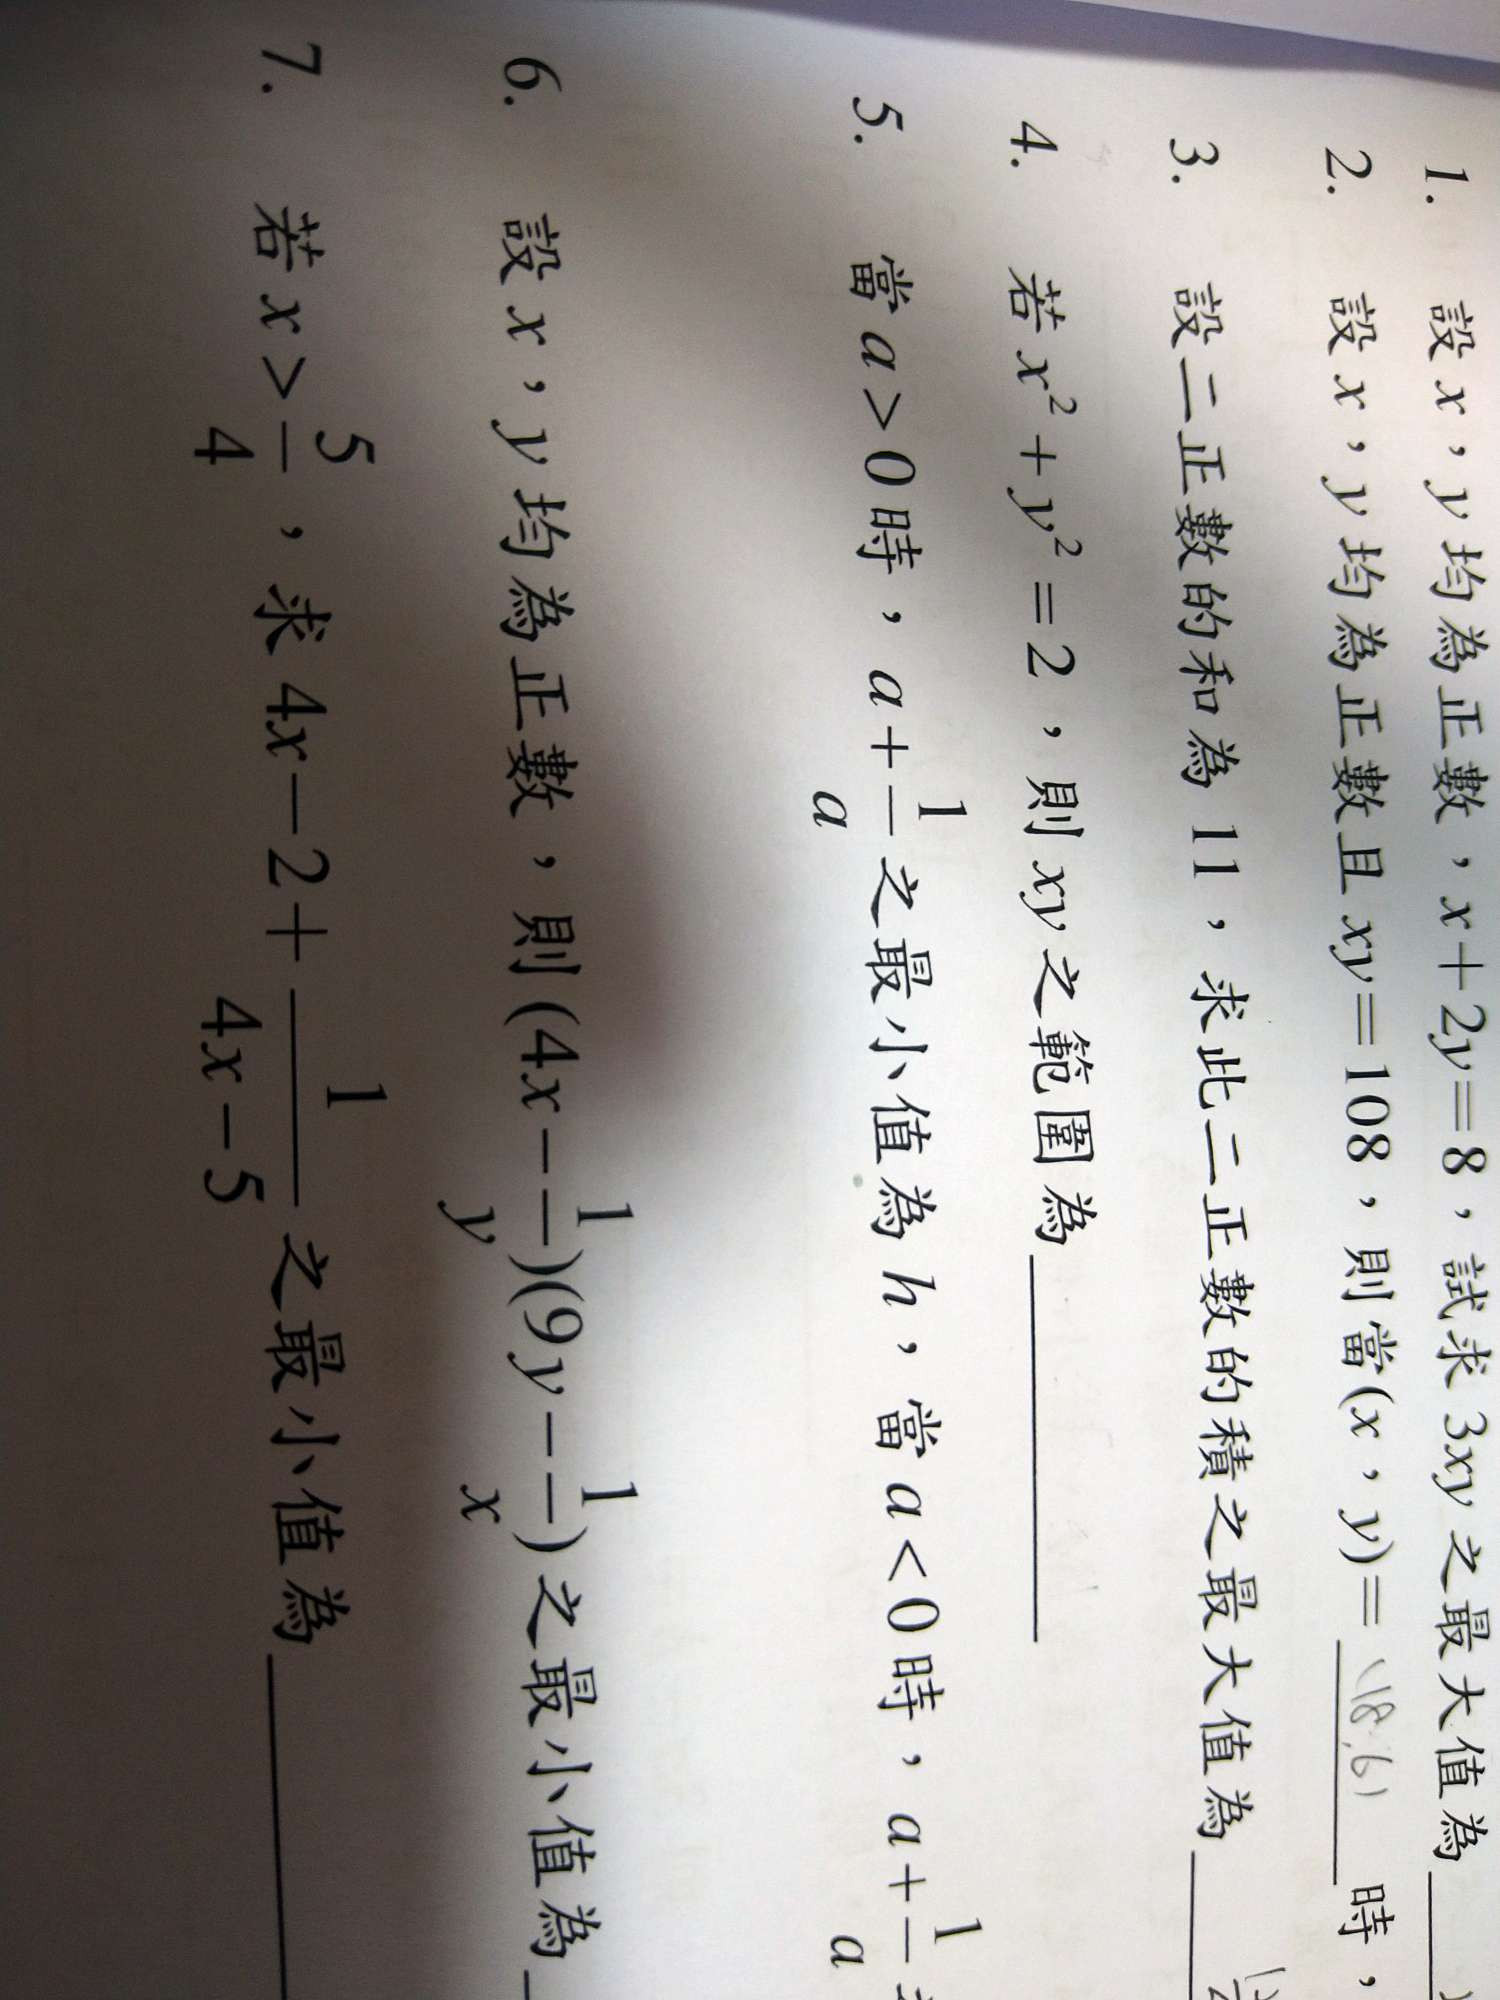 1. 設 x，y 均為正數，x+2y=8，試求 3xy 之最大值為
2. 設 x，y 均為正數且 xy=108，則當(x，y)= (18,6) 時，
3. 設二正數的和為 11，求此二正數的積之最大值為
4. 若 x²+y²=2，則 xy 之範圍為
5. 當 a>0 時，a+1/a 之最小值為 h，當 a<0 時，a+1/a
6. 設 x，y 均為正數，則(4x-1/y)(9y-1/x)之最小值為
7. 若 x>5/4，求 4x-2+1/(4x-5) 之最小值為